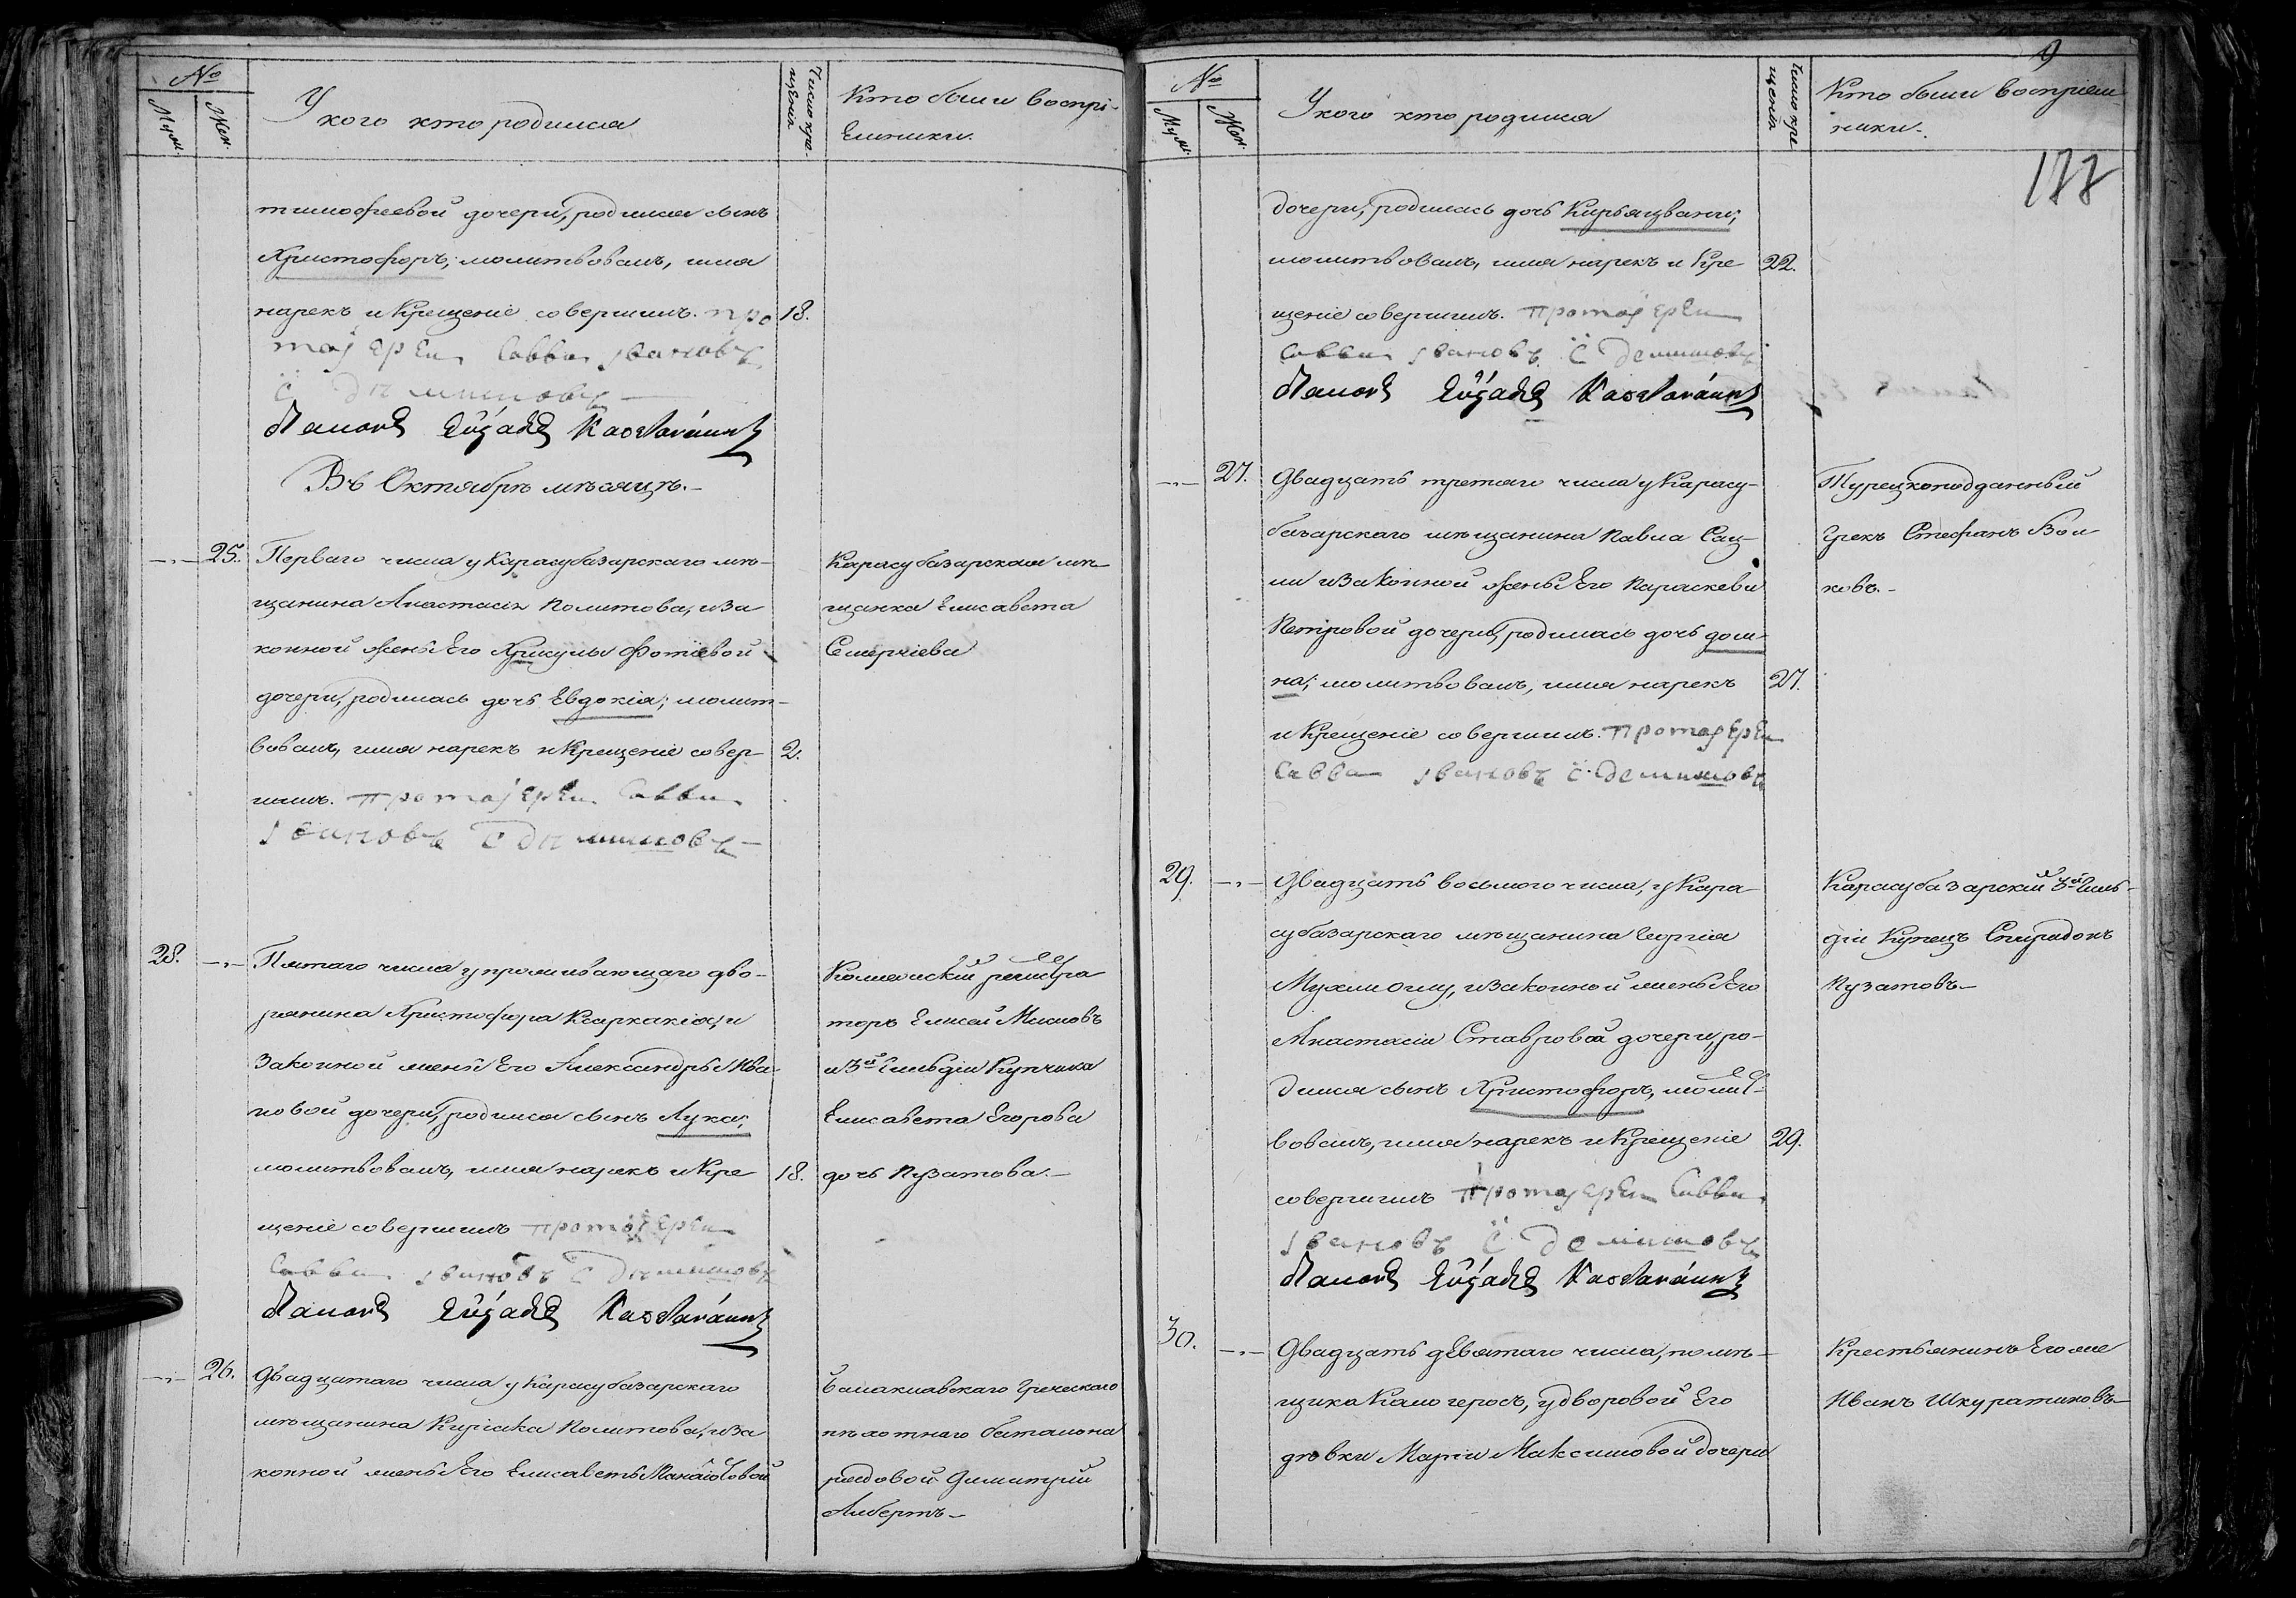 №
Муж.
Жен.
У кого кто родился
Число кре-
щенія
Кто были воспрі-
емники.
тимофеевой дочери, родился сынъ
Христофоръ; молитвовалъ, имя
нарекъ и Крещеніе совершилъ. про 18.
тоіерей Савва Івановъ
Въ Октябрѣ мѣсяцѣ.
25. Перваго числа у Карасубазарскаго мѣ-
щанина Анастасія Политова, и за
конной жены Его Хрисулы Фотіевой
дочери, родилась дочь Евдокія; молит-
вовалъ, имя нарекъ и Крещеніе совер- 2.
шилъ. протоіерей Савва
Івановъ
Карасубазарская мѣ-
щанка Елисавета
Семерчіева
28. Пятаго числа у проживающаго дво-
рянина Христофора Ксаркакія, и
Законной жены Его Александры Ива-
новой дочери, родился сынъ Лука;
молитвовалъ, имя нарекъ и Кре 18.
щеніе совершилъ протоіерей
Савва Івановъ
Коллежскій регистра
торъ Елисей Мисловъ
и 3й Гильдіи Купчиха
Елисавета Егорова
дочь Пузатова.
26. Двадцатаго числа у Карасубазарскаго
мѣщанина Киріака Политова, и за
конной жены Его Елисаветы Манаіотовой
Балаклавскаго Греческаго
пѣхотнаго баталіона
рядовой Димитрій
Албертъ
9
№
Муж.
Жен.
У кого кто родился
Число кре
щенія
Кто были воспріем
ники.
177
дочери, родилась дочь Кирьяцвани;
молитвовалъ, имя нарекъ и Кре 22.
щеніе совершилъ. протоіерей
Савва Івановъ
27. Двадцать третяго числа у Карасу-
базарскаго мѣщанина Павла Сац-
ли и Законной жены Его Параскеви
Петровой дочери, родилась дочь дом-
на; молитвовалъ, имя нарекъ 27.
и Крещеніе совершилъ. протоіерей
Савва Івановъ
Турецкоподданный
Грекъ Стефанъ Вои
ковъ.
29. Двадцать восьмого числа, у Кара-
субазарскаго мѣщанина Георгія
Мухиноглу, и законной жены Его
Анастасіи Ставровой дочери, ро-
дился сынъ Христофоръ, молит-
вовалъ, имя нарекъ и Крещеніе 29.
совершилъ протоіерей Савва
Івановъ
Карасубазарскій 3й Гиль-
діи Купецъ Спиридонъ
Пузатовъ
30. Двадцать девятаго числа, помѣ-
щика Калогеросъ, у дворовой Его
дѣвки Маріи Максимовой дочери
Крестьянинъ Его же
Иванъ Шкуратиковъ